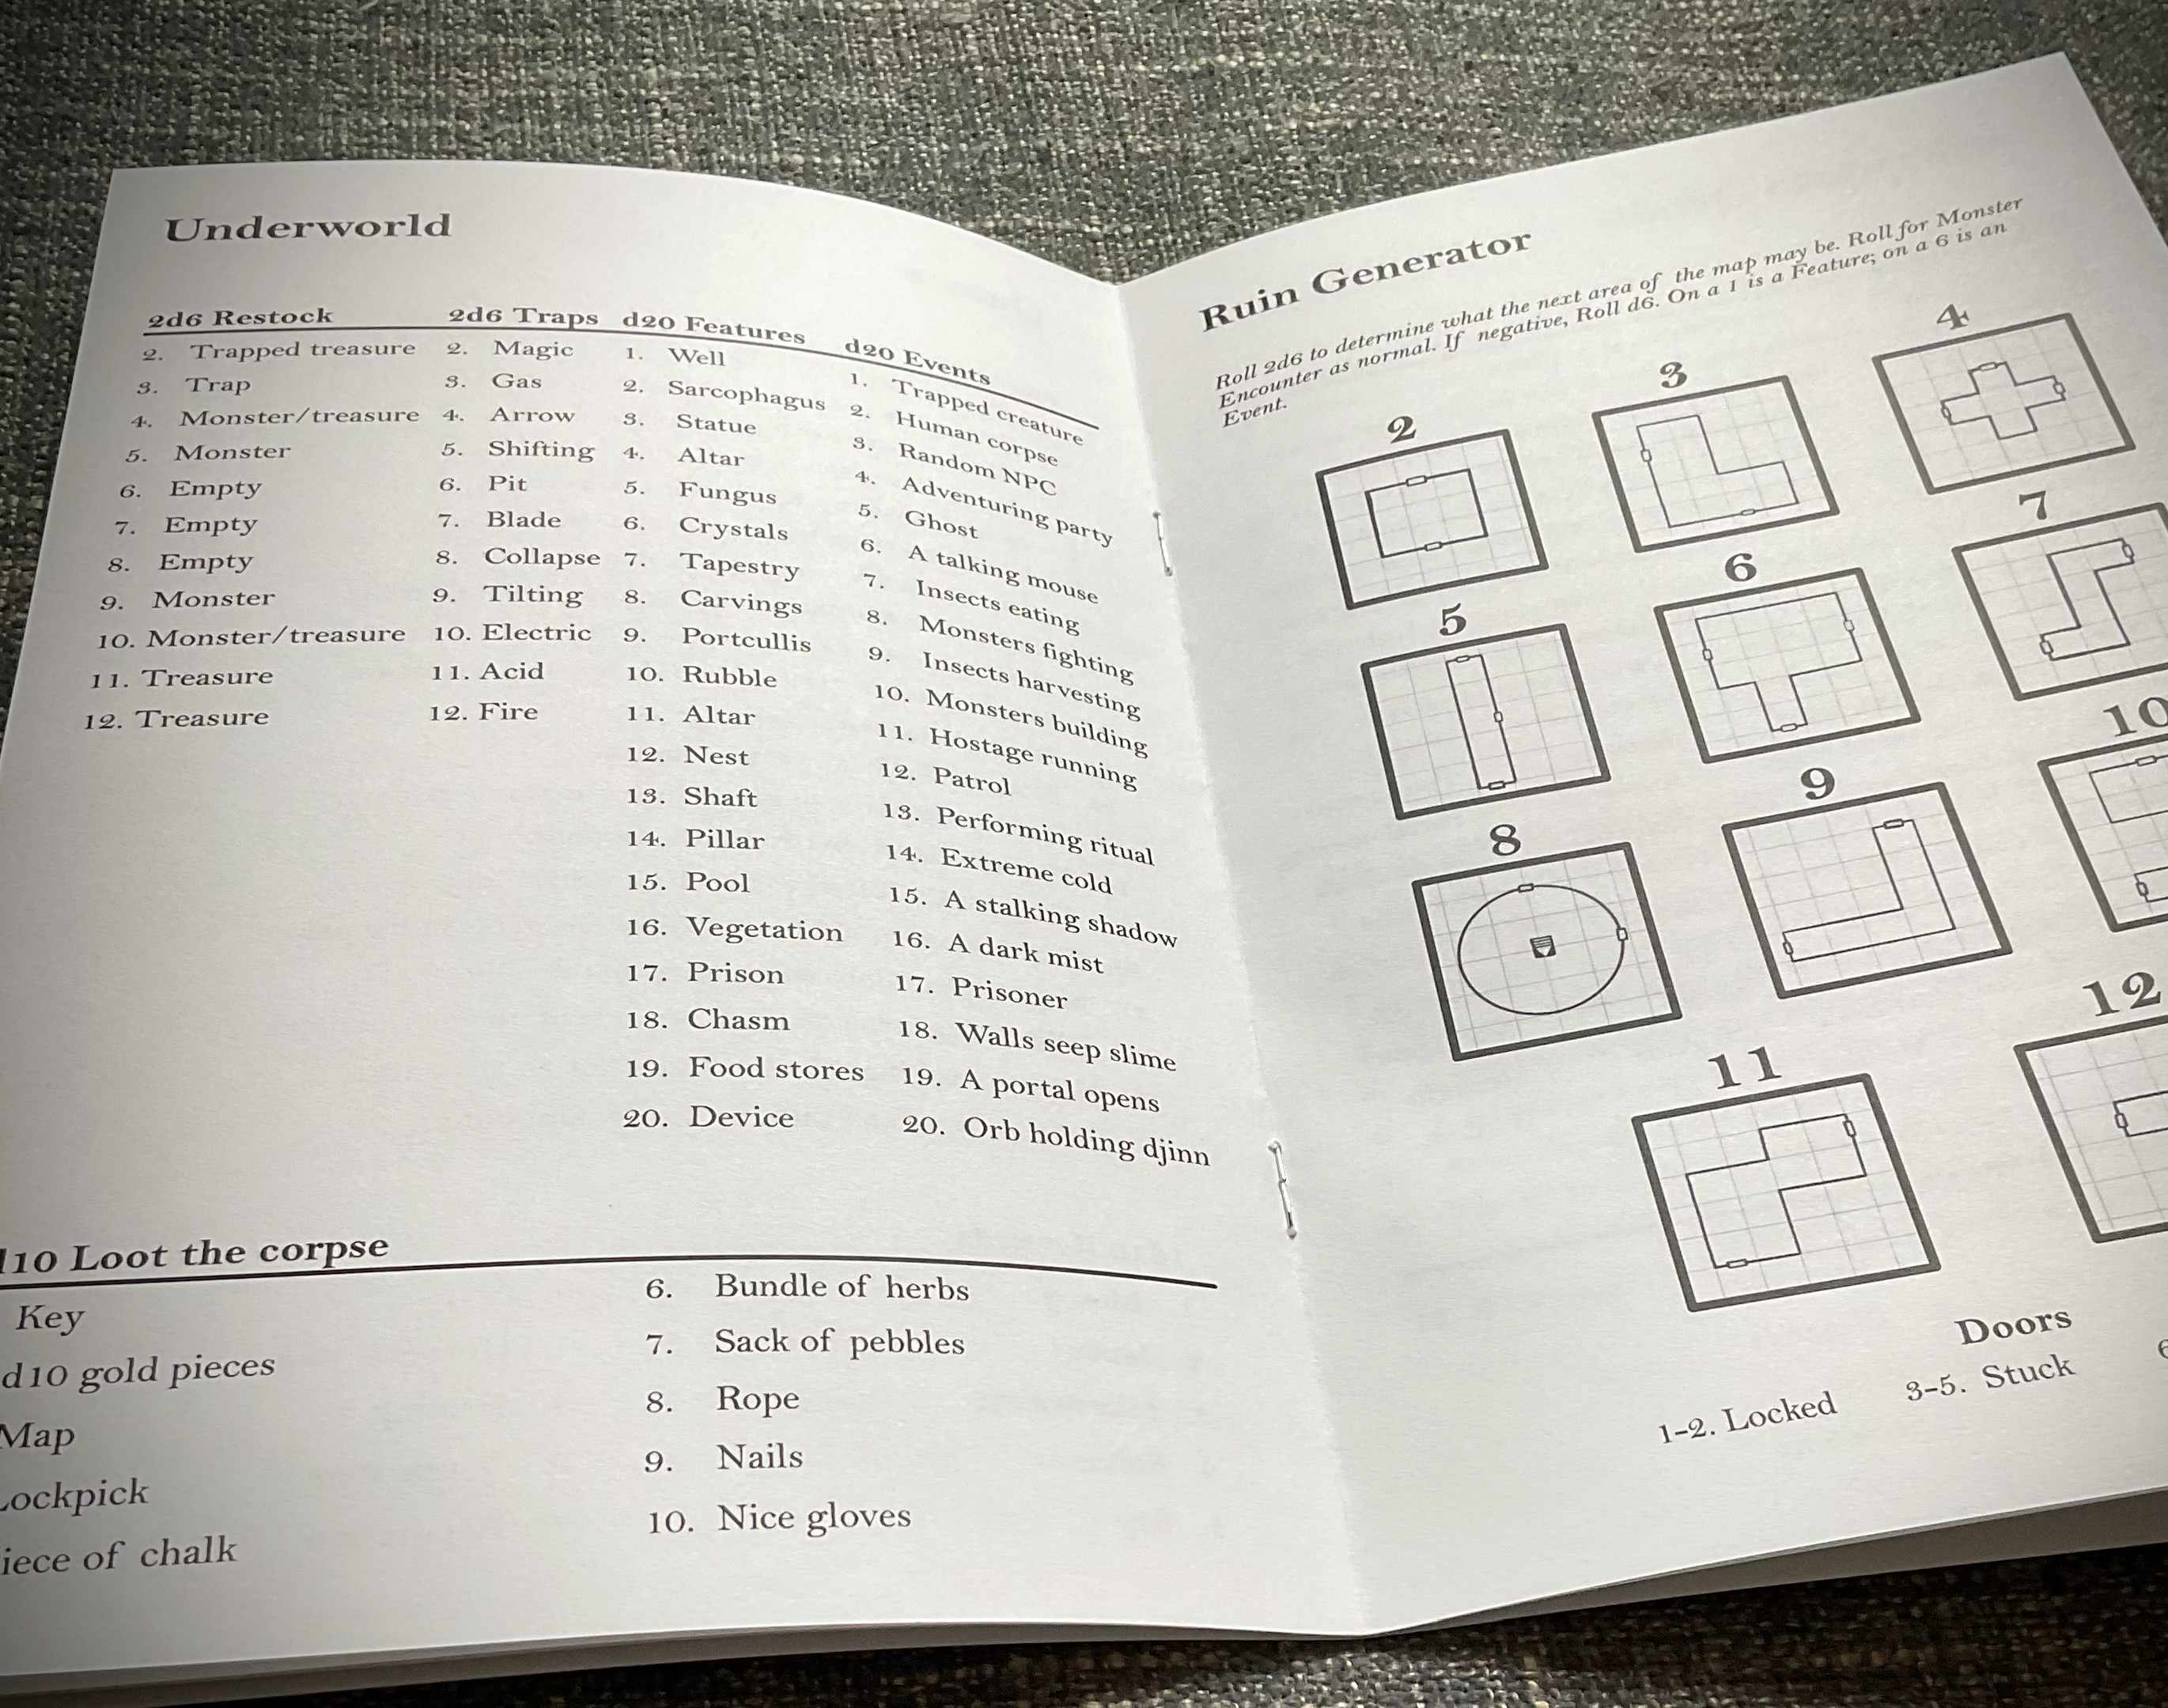 Underworld
2d6 Restock
2. Trapped treasure
3. Trap
4. Monster/treasure
5. Monster
6. Empty
7. Empty
8. Empty
9. Monster
10. Monster/treasure
11. Treasure
12. Treasure
2d6 Traps
2. Magic
3. Gas
4. Arrow
5. Shifting
6. Pit
7. Blade
8. Collapse
9. Tilting
10. Electric
11. Acid
12. Fire
d20 Features
1. Well
2. Sarcophagus
3. Statue
4. Altar
5. Fungus
6. Crystals
7. Tapestry
8. Carvings
9. Portcullis
10. Rubble
11. Altar
12. Nest
13. Shaft
14. Pillar
15. Pool
16. Vegetation
17. Prison
18. Chasm
19. Food stores
20. Device
d20 Events
1. Trapped creature
2. Human corpse
3. Random NPC
4. Adventuring party
5. Ghost
6. A talking mouse
7. Insects eating
8. Monsters fighting
9. Insects harvesting
10. Monsters building
11. Hostage running
12. Patrol
13. Performing ritual
14. Extreme cold
15. A stalking shadow
16. A dark mist
17. Prisoner
18. Walls seep slime
19. A portal opens
20. Orb holding djinn
Loot the corpse
Key
d10 gold pieces
Map
of chalk
6. Bundle of herbs
7. Sack of pebbles
8. Rope
9. Nails
10. Nice gloves
Ruin Generator
Roll 2d6 to determine what the next area of the map may be. Roll for Monster
Encounter as normal. If negative, Roll d6. On a 1 is a Feature; on a 6 is an
Event.
2
3
4
5
6
7
8
9
10
11
12
Doors
1-2. Locked
3-5. Stuck